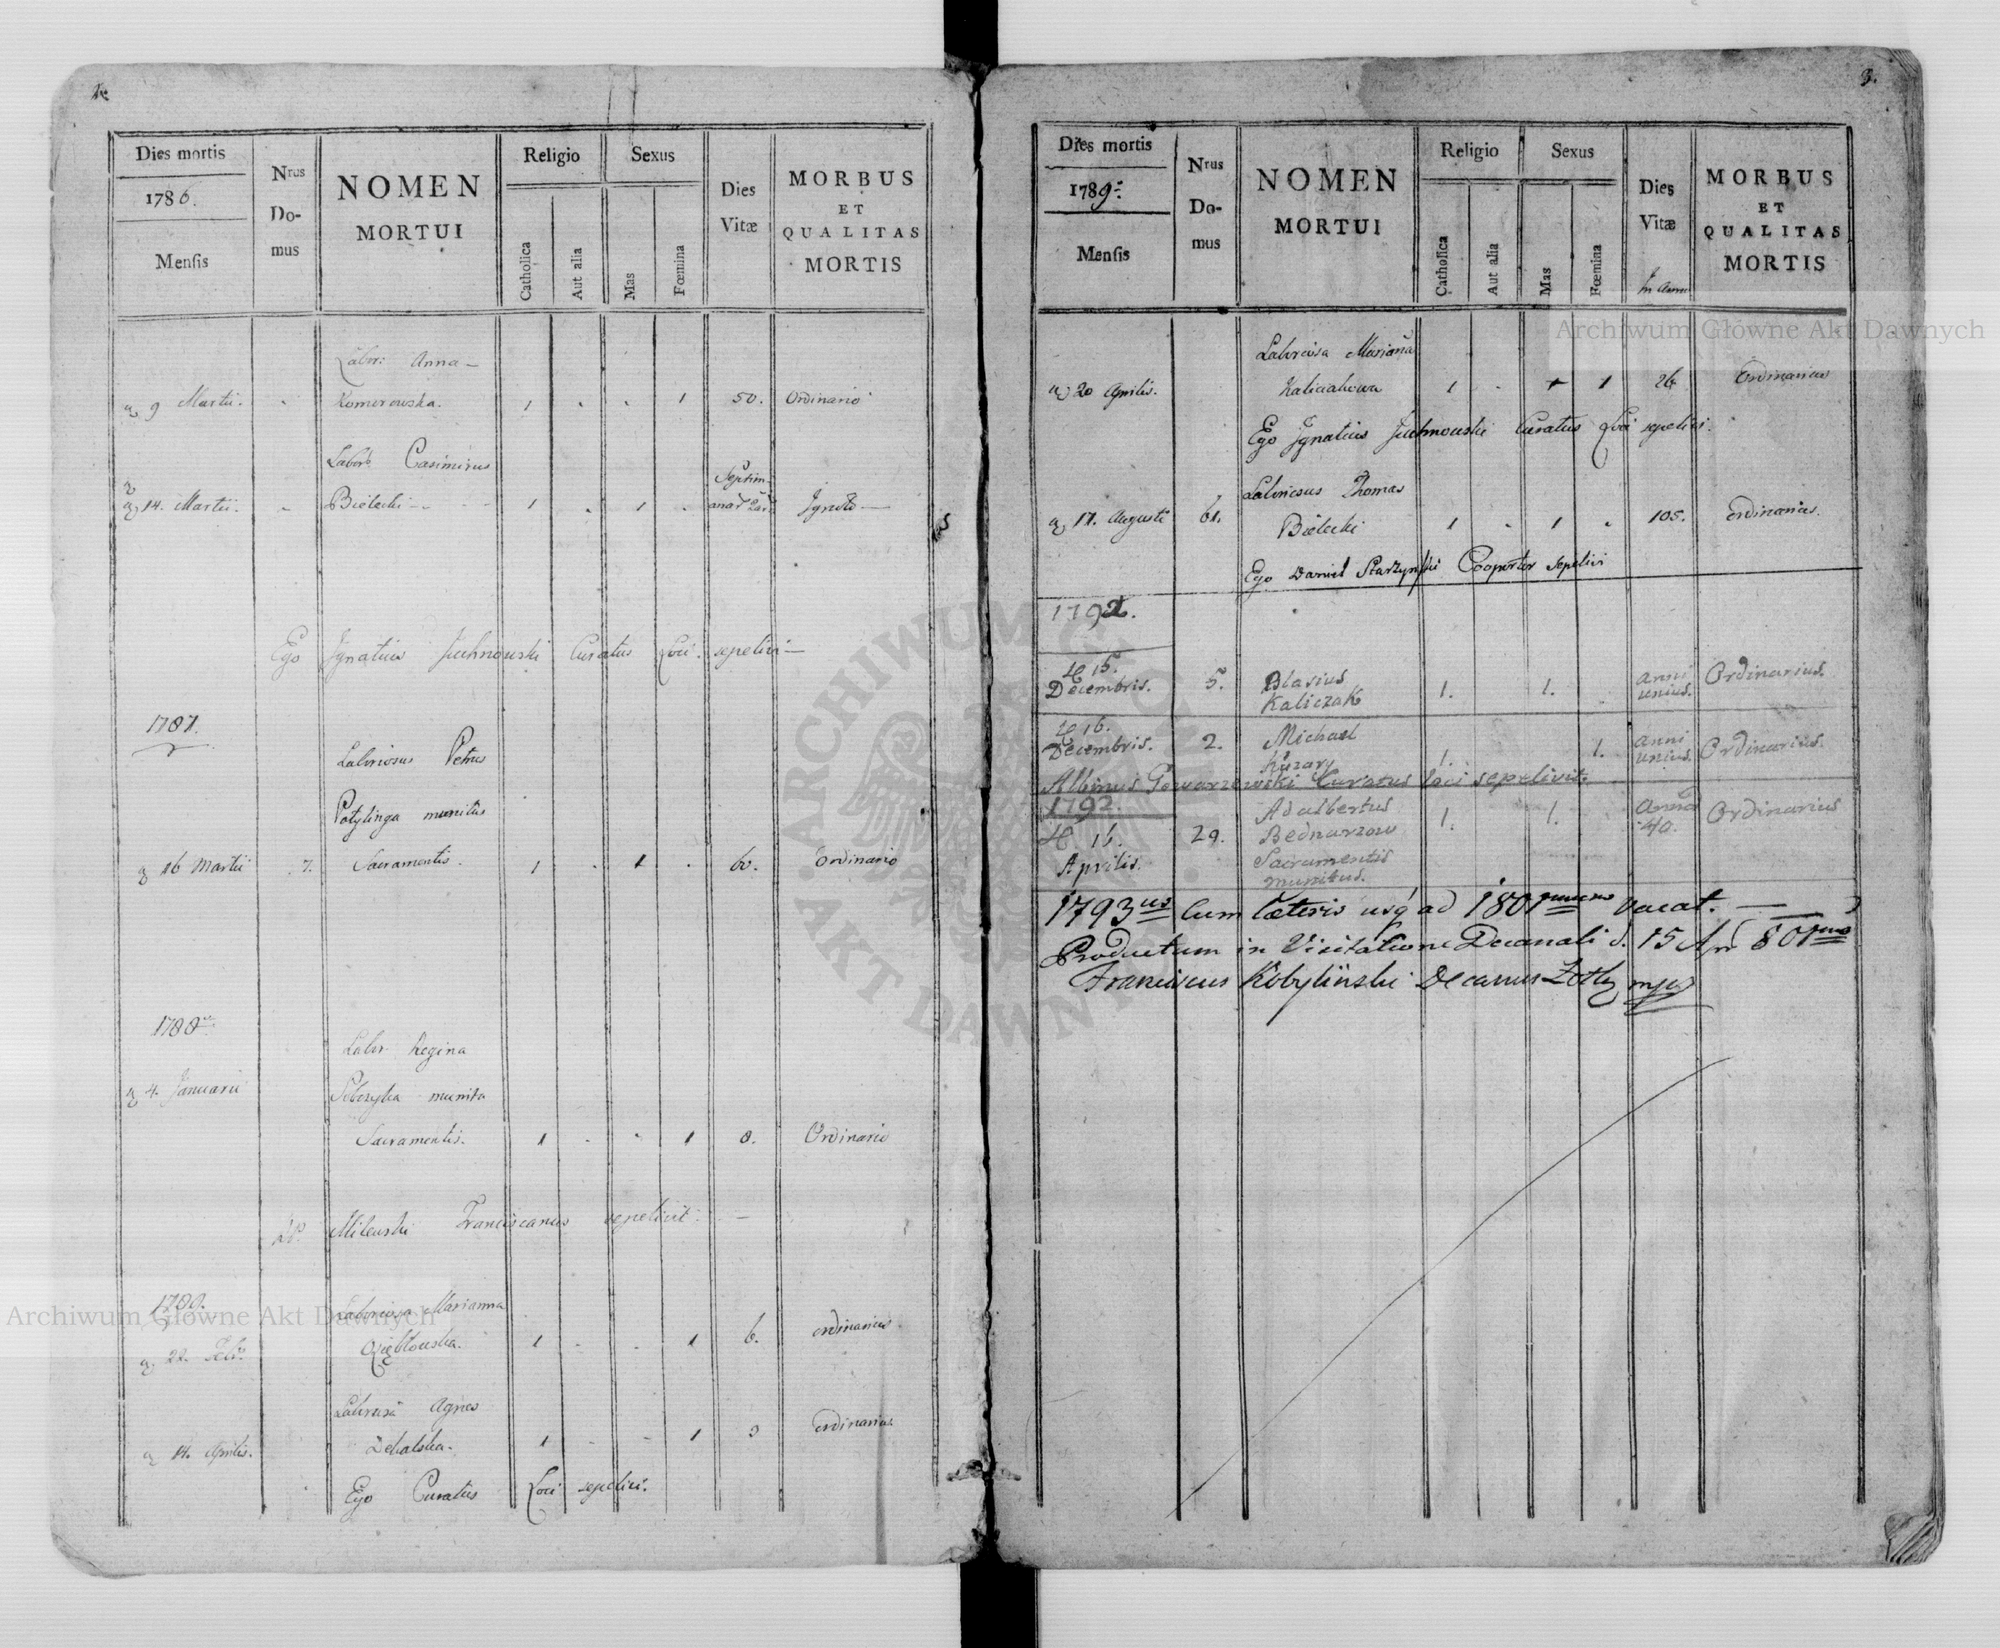 Dies mortis
1786.
Mensis
Nrus
Do-
mus
NOMEN
MORTUI
Religio
Catholica
Aut alia
Sexus
Mas
Fœmina
Dies
Vitæ
MORBUS
ET
QUALITAS
MORTIS
Labor: Anna
9 Martii. Komorowska. 1 1 50. Ordinario
Labor: Casimirus
14. Martii. Bielecki 1 1 Ignoto
Ego Ignatius Juchnowski Curatus Loci sepelivi
1787.
Laboriosus Petrus
Potylinga munitus
16 Martii 7. Sacramentis. 1 1 60. Ordinario
1788
Labor Regina
4. Januarii munita
Sacramentis. 1 1 8. Ordinario
Milewski Franciscanus sepelivit.
1789.
Laboriosa Marianna
22. Feb. 1 1 6. ordinarius
Laboriosa Agnes
14. Aprilis. 1 1 ordinarius
Ego Curatus Loci sepelivi.
3.
Dies mortis
1789
Mensis
Nrus
Do-
mus
NOMEN
MORTUI
Religio
Catholica
Aut alia
Sexus
Mas
Fœmina
Dies
Vitæ
MORBUS
ET
QUALITAS
MORTIS
Laboriosa Mariana
20 Aprilis. Kaliciakowa 1 1 26 Ordinarius
Ego Ignatius Juchnowski Curatus Loci sepelivi.
Laboriosus Thomas
17. Augusti 61. Bielecki 1 1 105. ordinarius.
Ego Daniel Starzynski Cooperator sepelivi
15.
Decembris. 5. Blasius Kaliczak 1. 1. anni unius. Ordinarius.
16.
Decembris. 2. Michael 1. 1. anni unius. Ordinarius
Albinus Gowarzewski Curatus loci sepelivit.
1792.
16.
Aprilis. 29. Adalbertus 1. 1. 40. Ordinarius
Bednarzow
Sacramentis
munitus.
1793us Cum Cæteris usq ad 1801 vacat.
Productum in Visitatione Decanali d. 15 Apr 801
Franciscus Kobyliński Decanus
ARCHIWUM GŁÓWNE AKT DAWNYCH
Archiwum Główne Akt Dawnych
Archiwum Główne Akt Dawnych